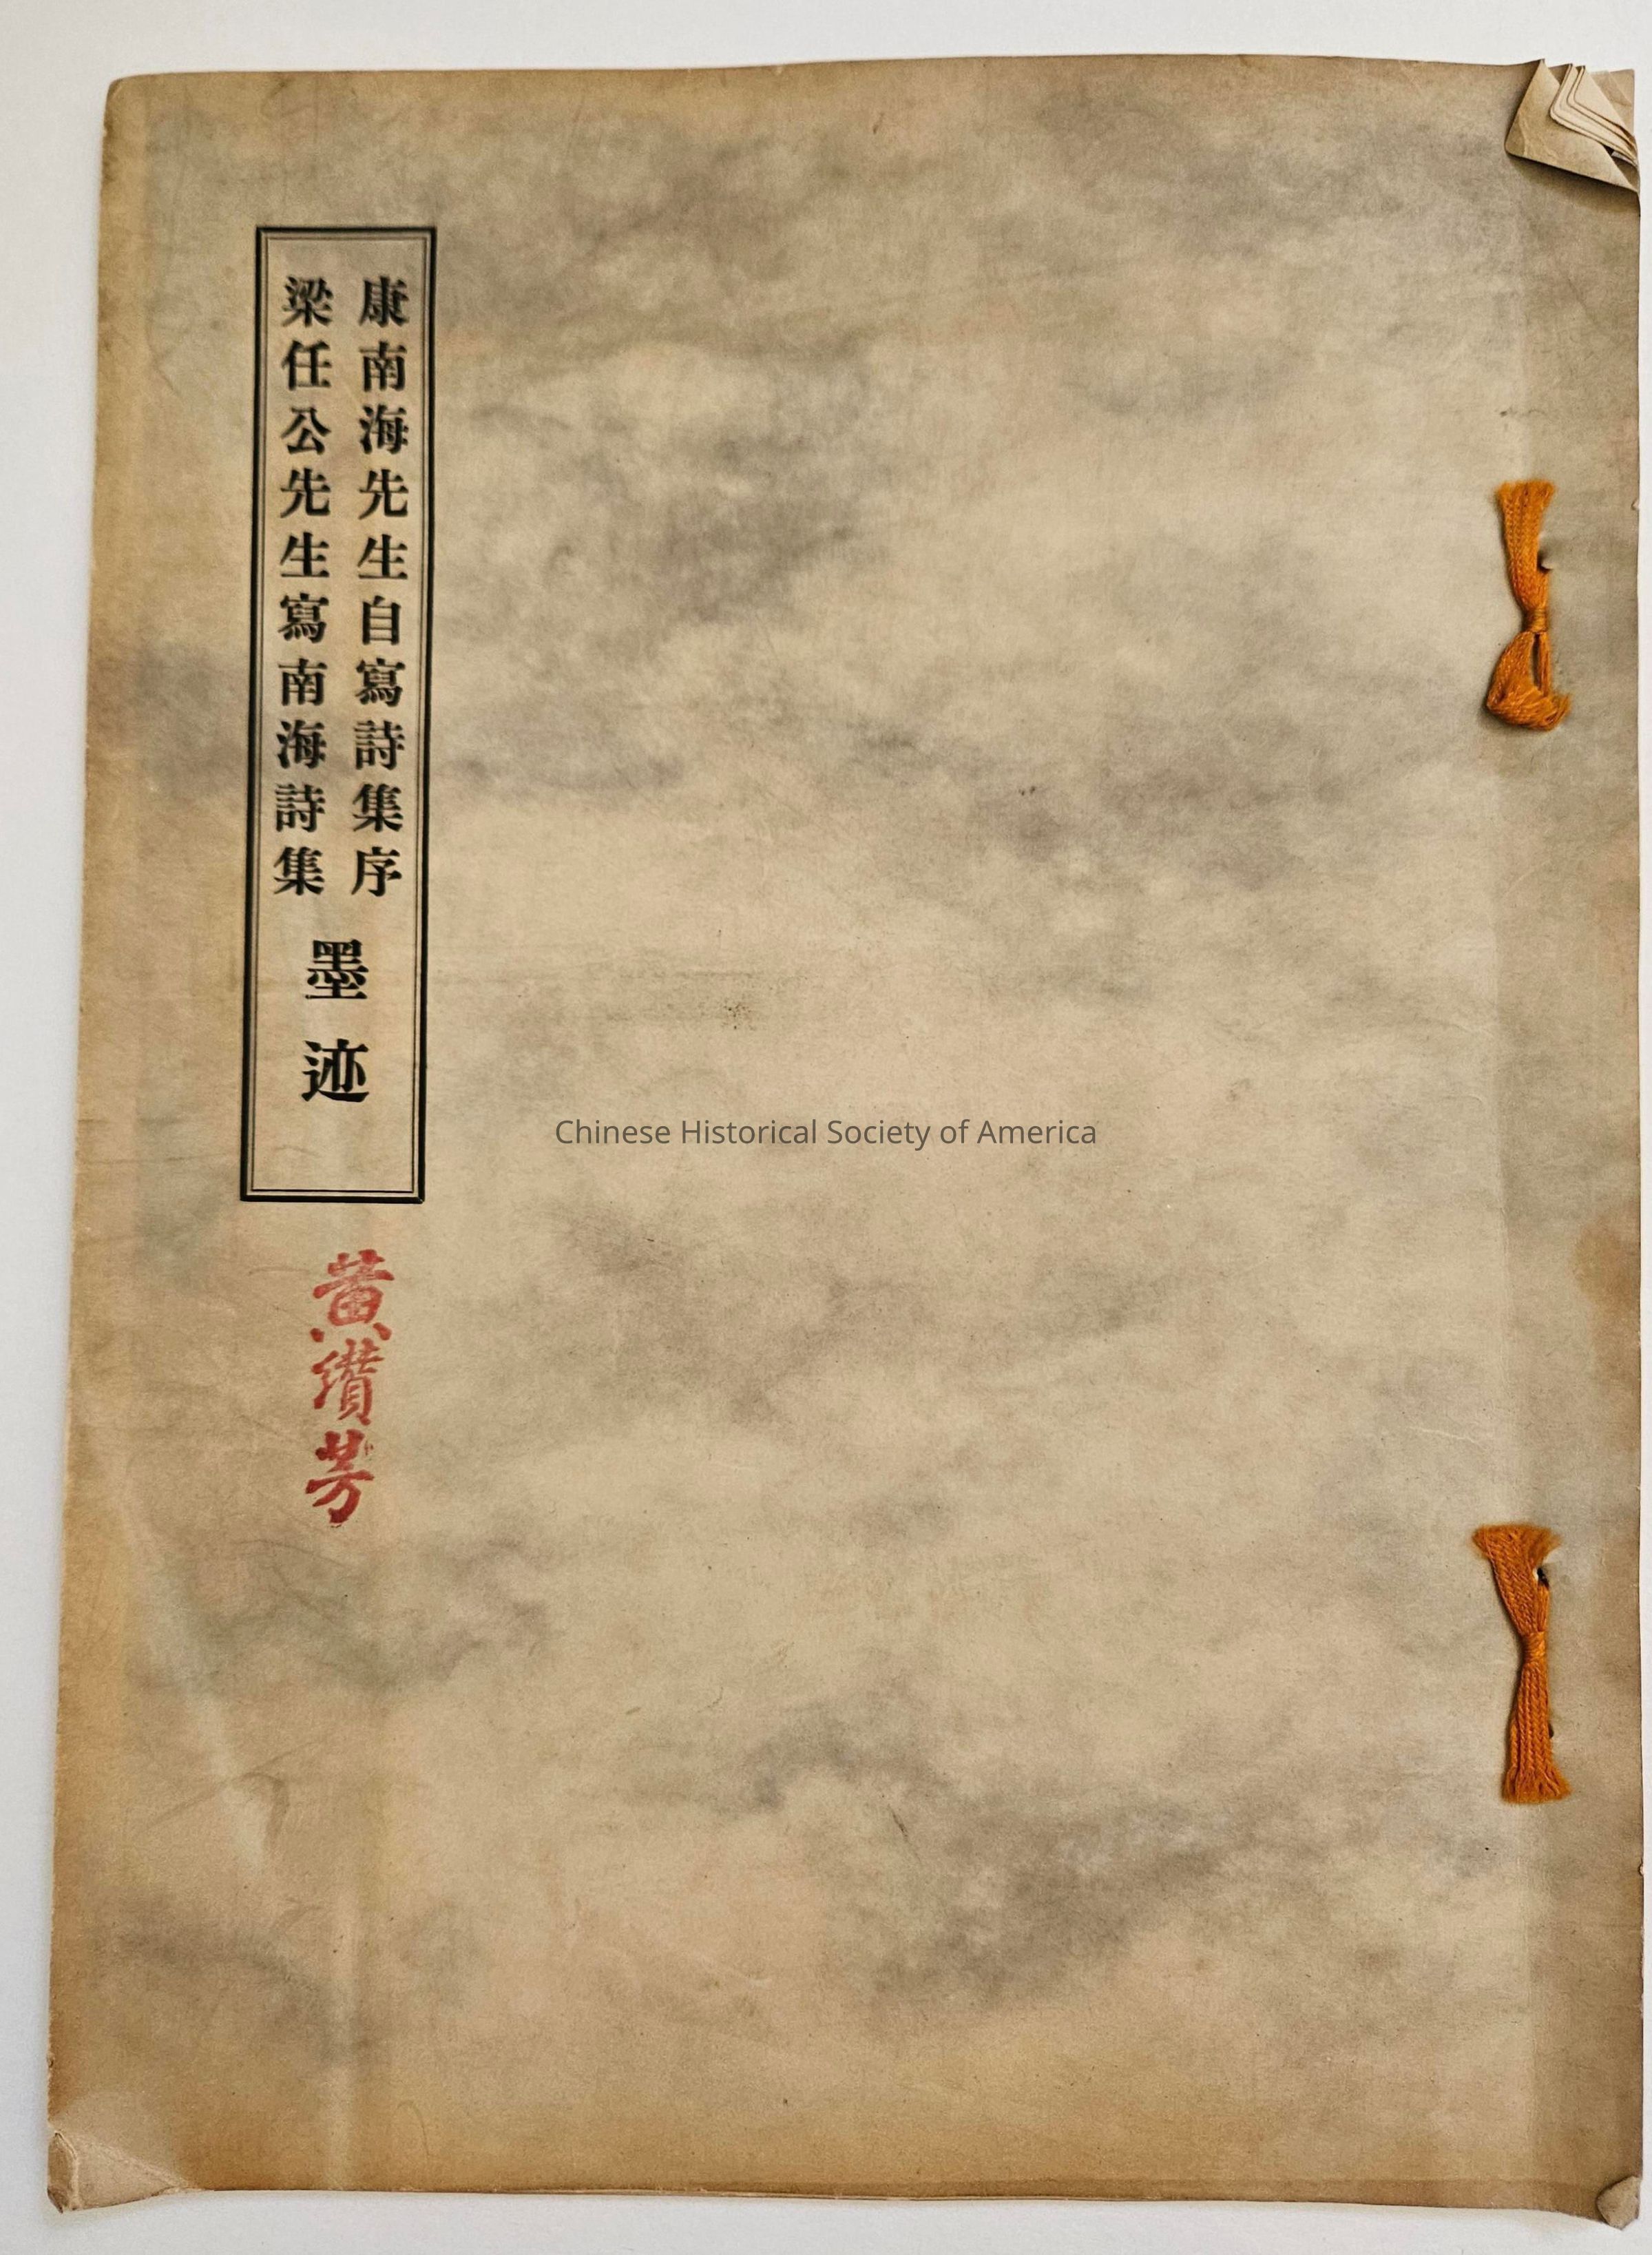 康南海先生自寫詩集序
梁任公先生寫南海詩集
墨迹
黃纘芳
Chinese Historical Society of America